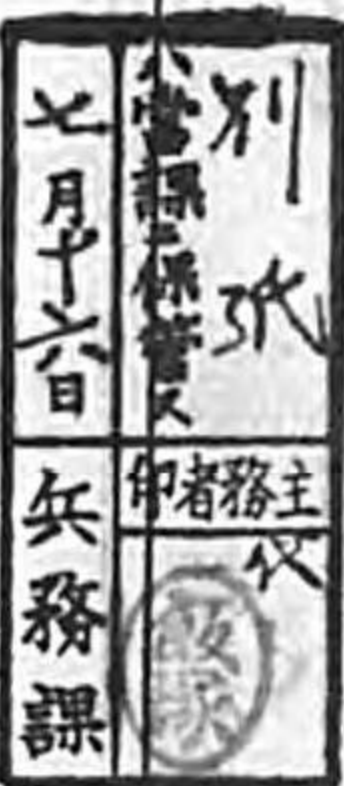 別紙
八當課ニ保管ス
七月十六日
主務者印
代
兵務課